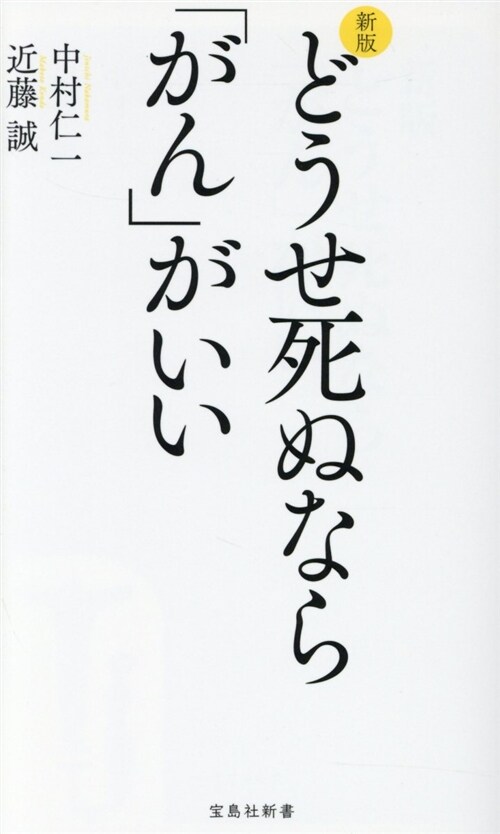 新版
どうせ死ぬなら
「がん」がいい
中村仁一
Jinichi Nakamura
近藤 誠
Makoto Kondo
宝島社新書